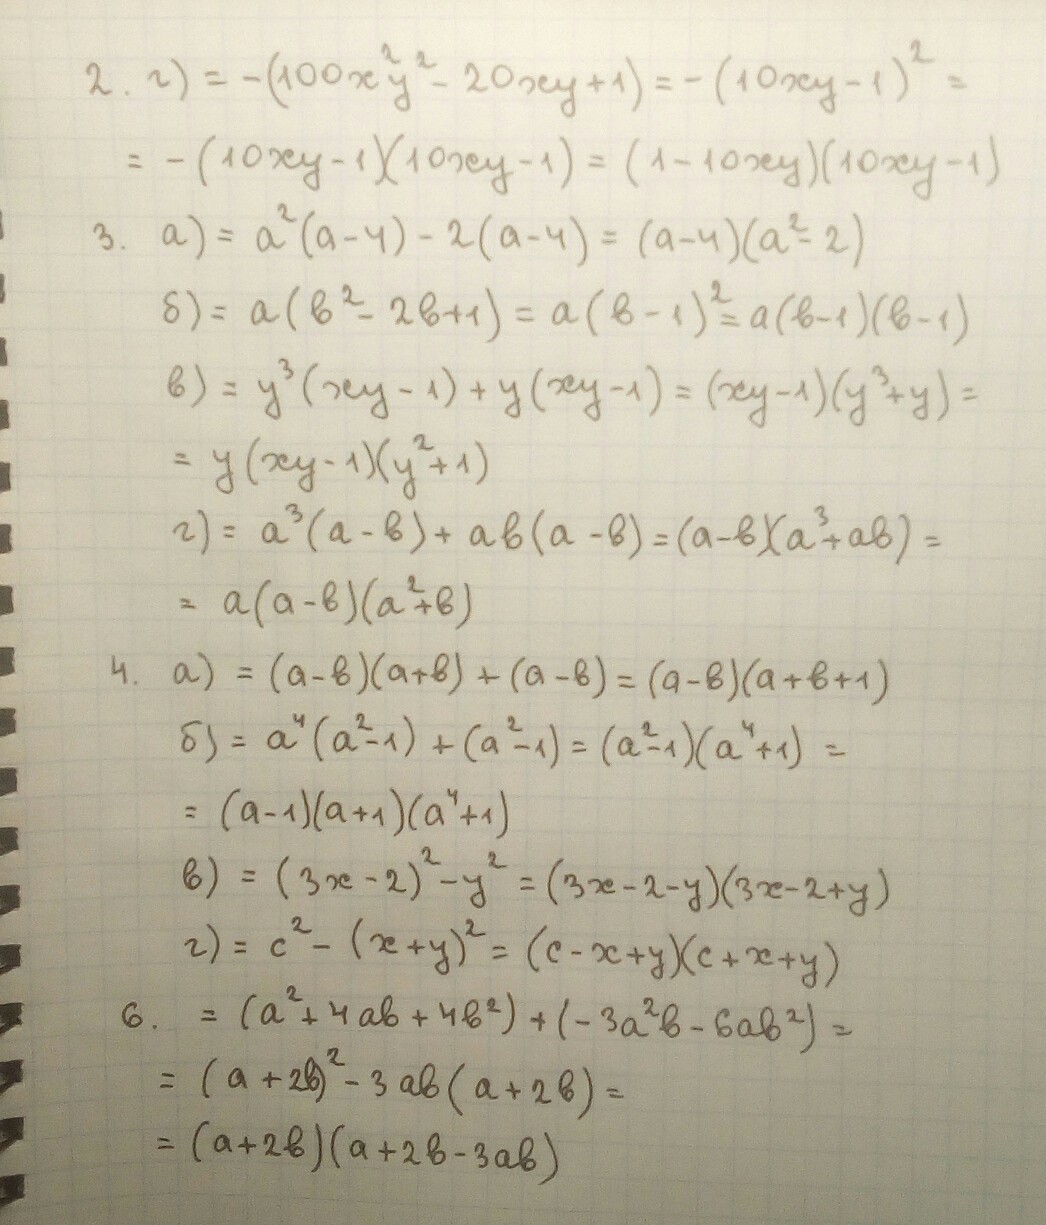 2. г) = -(100x²y² - 20xy + 1) = -(10xy - 1)² =
= -(10xy - 1)(10xy - 1) = (1 - 10xy)(10xy - 1)
3. а) = a²(a - 4) - 2(a - 4) = (a - 4)(a² - 2)
б) = a(в² - 2в + 1) = a(в - 1)² = a(в - 1)(в - 1)
в) = y³(xy - 1) + y(xy - 1) = (xy - 1)(y³ + y) =
= y(xy - 1)(y² + 1)
г) = a³(a - в) + aв(a - в) = (a - в)(a³ + aв) =
= a(a - в)(a² + в)
4. а) = (a - в)(a + в) + (a - в) = (a - в)(a + в + 1)
б) = a⁴(a² - 1) + (a² - 1) = (a² - 1)(a⁴ + 1) =
= (a - 1)(a + 1)(a⁴ + 1)
в) = (3x - 2)² - y² = (3x - 2 - y)(3x - 2 + y)
г) = c² - (x + y)² = (c - x + y)(c + x + y)
6. = (a² + 4aв + 4в²) + (- 3a²в - 6aв²) =
= (a + 2в)² - 3aв(a + 2в) =
= (a + 2в)(a + 2в - 3aв)